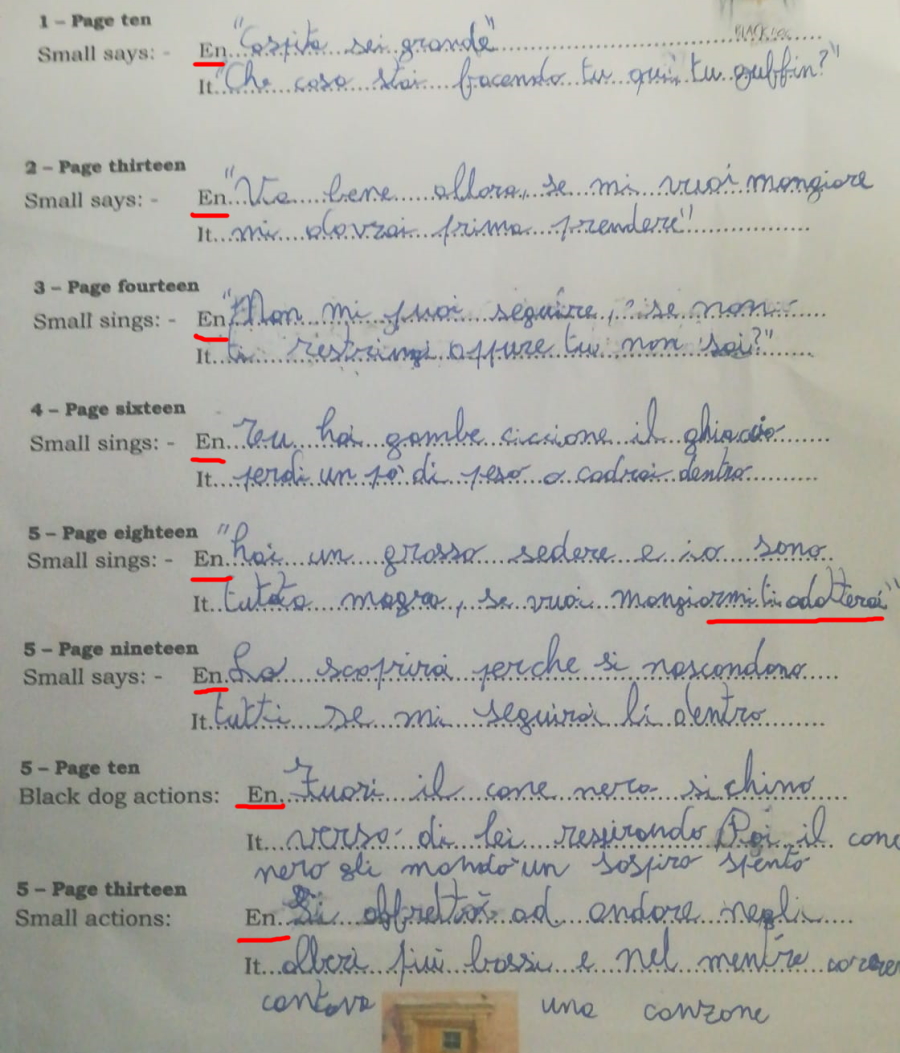 1 – Page ten
Small says: - En "Caspita sei grande"
It "Che cosa stai facendo tu qui, tu guffin?"
2 – Page thirteen
Small says: - En "Va bene allora, se mi vuoi mangiare
It mi dovrai prima prendere"
3 – Page fourteen
Small sings: - En "Non mi puoi seguire, se non
It ti restringi oppure tu non sai?"
4 – Page sixteen
Small sings: - En Tu hai gambe ciccione il ghiaccio
It perdi un pò di peso o cadrai dentro
5 – Page eighteen
Small sings: - En "hai un grosso sedere e io sono
It tutta magra, se vuoi mangiarmi ti adatterai"
5 – Page nineteen
Small says: - En Lo scoprirai perche si nascondono
It tutti se mi seguirai li dentro
5 – Page ten
Black dog actions: En Fuori il cane nero si chino
It verso di lei respirando Poi il cane
nero gli mandò un sospiro spento
5 – Page thirteen
Small actions: En Si affrettò ad andare negli
It alberi più bassi e nel mentre
cantava una canzone